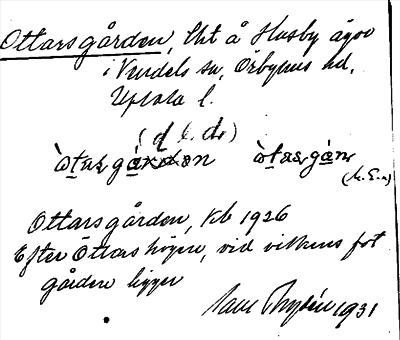 Ottarsgården, lht å Husby ägor
i Vendels sn, Örbyhus hd,
Upsala l.
(d l. dn)
òtasgå̀n
Ottarsgården, Kb 1926
Efter Ottars högen, vid vilkens fot
gården ligger
1931